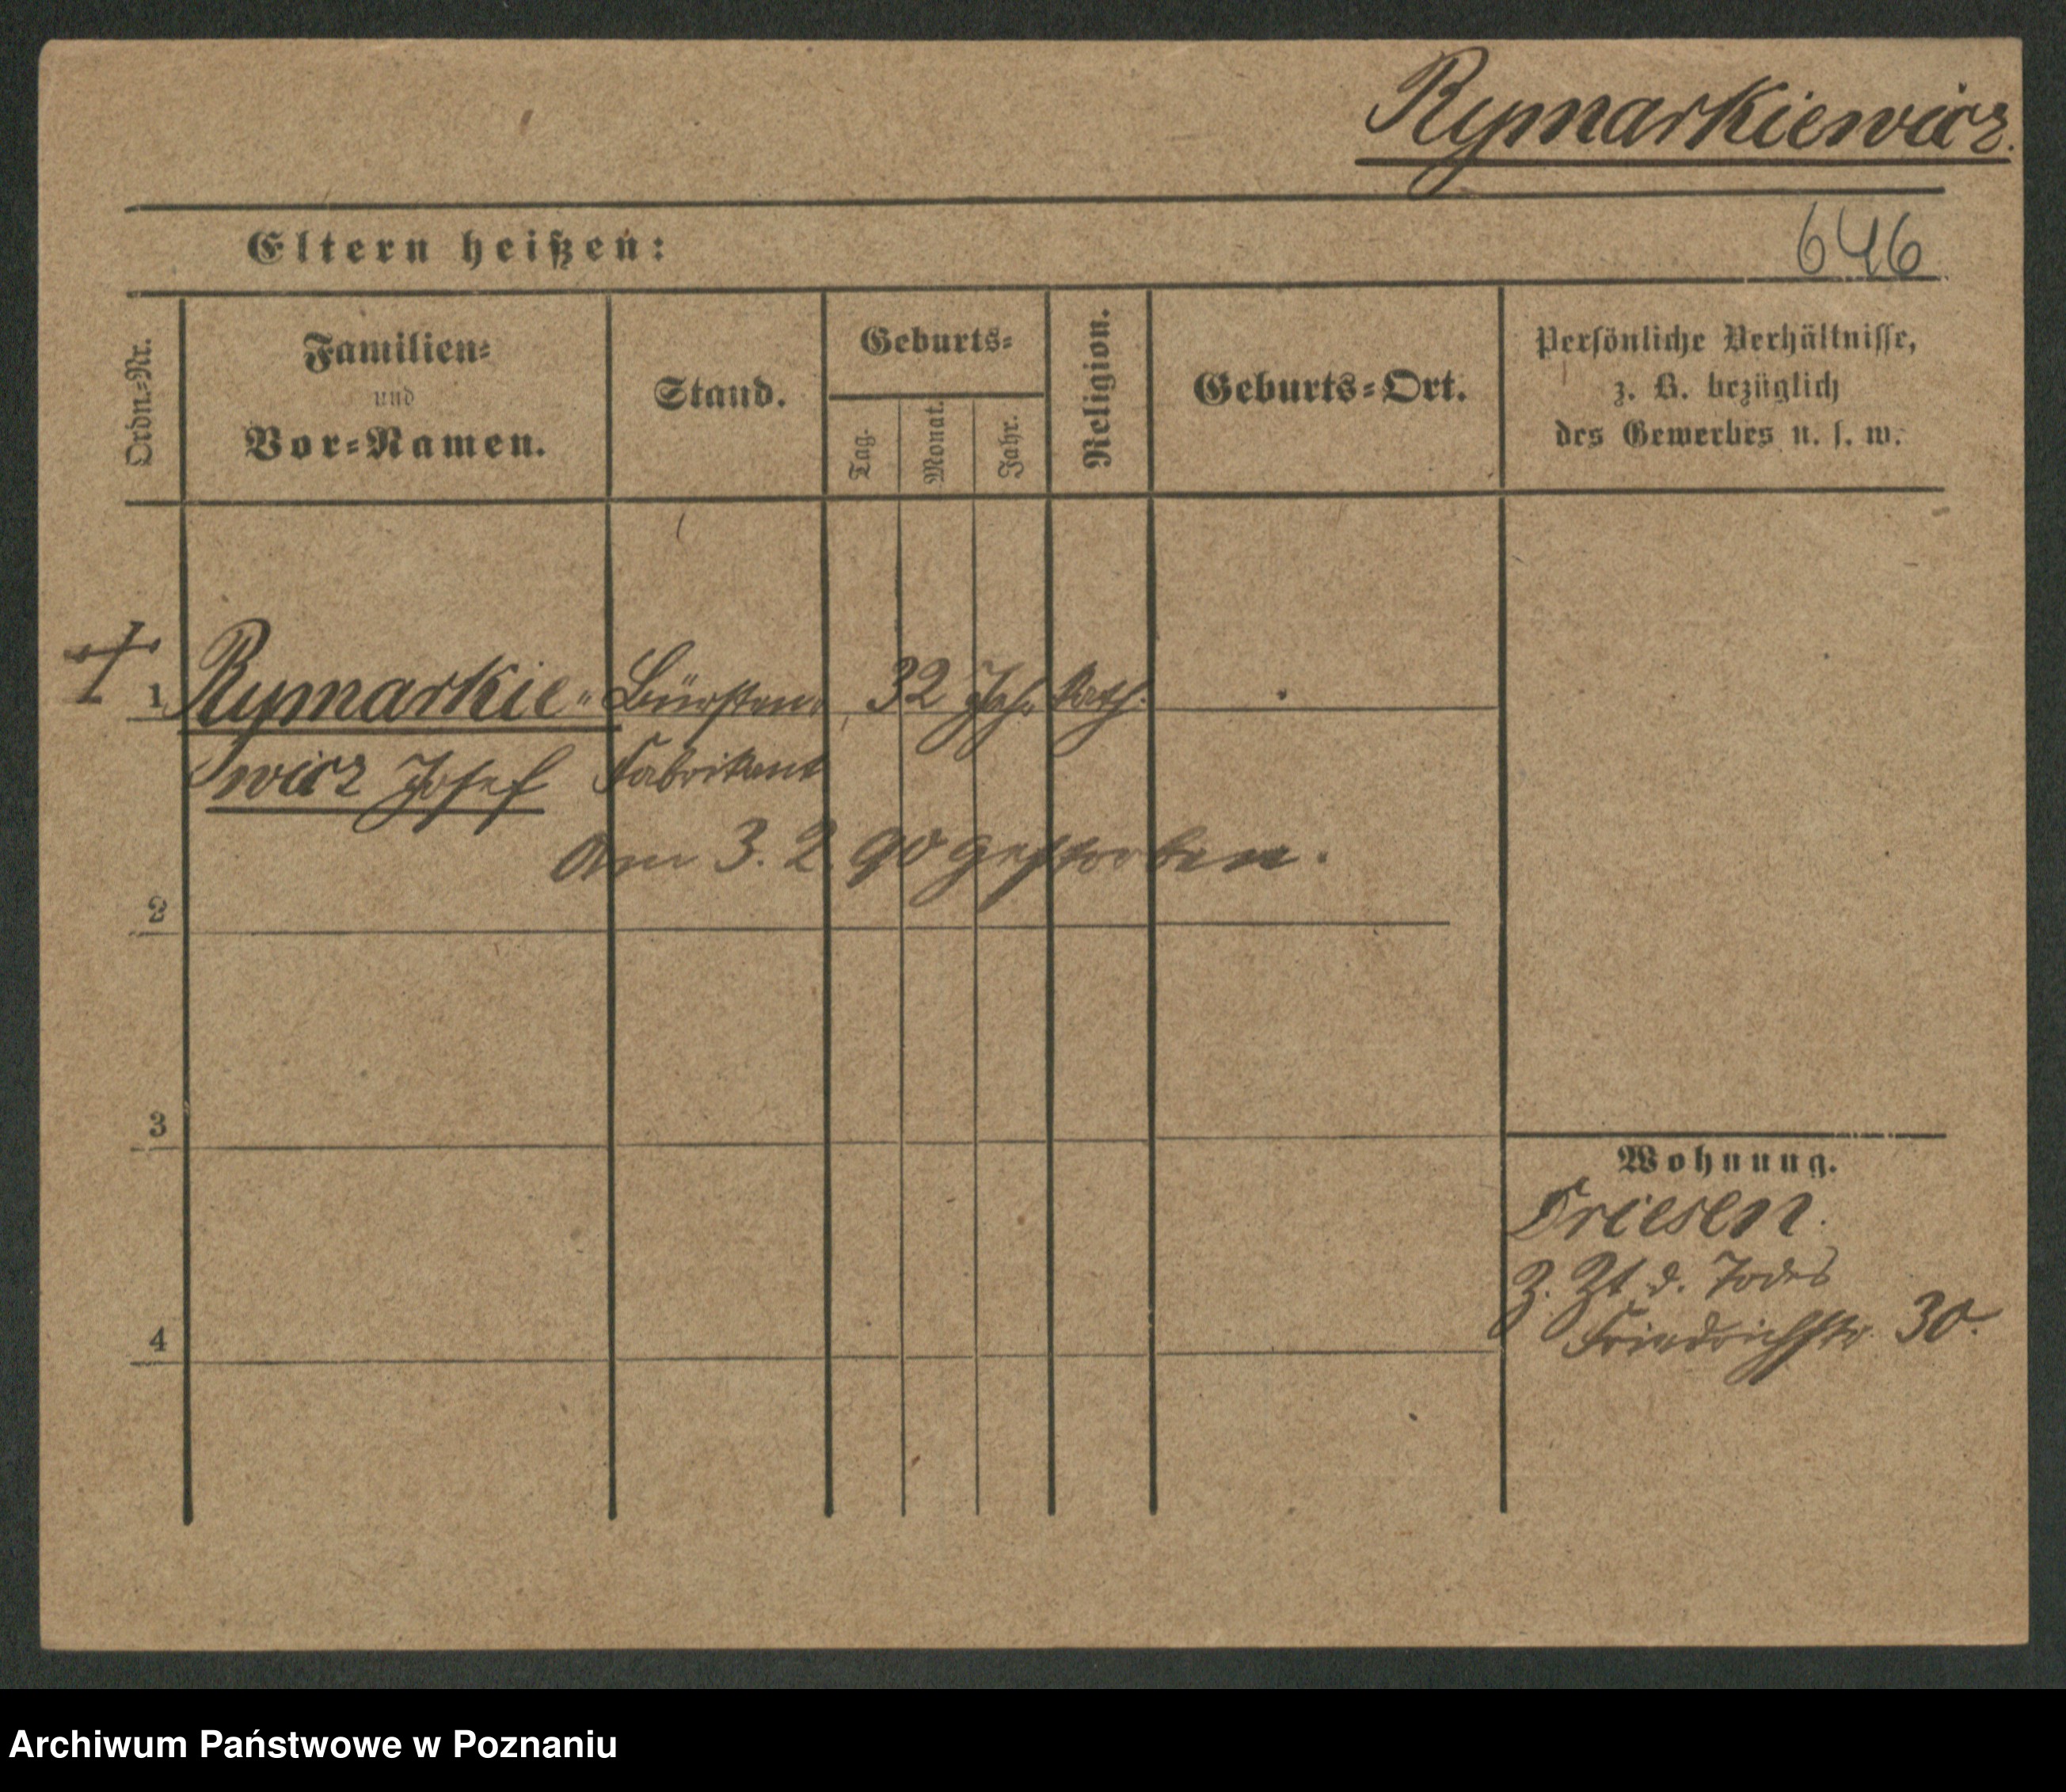 Rymarkiewicz.
Eltern heißen:
646
Ordn.-Nr.
Familien-
und
Vor-Namen.
Stand.
Geburts-
Tag.
Monat.
Jahr.
Religion.
Geburts-Ort.
Persönliche Verhältnisse,
z. B. bezüglich
des Gewerbes u. s. w.
1 Rymarkie- Bürsten- 32 Jahr kath.
wicz Josef Fabrikant
Am 3. 2. 90 gestorben.
2
3
4
Wohnung.
Driesen.
Z. Zt. d. Todes
Friedrichstr. 30.
Archiwum Państwowe w Poznaniu